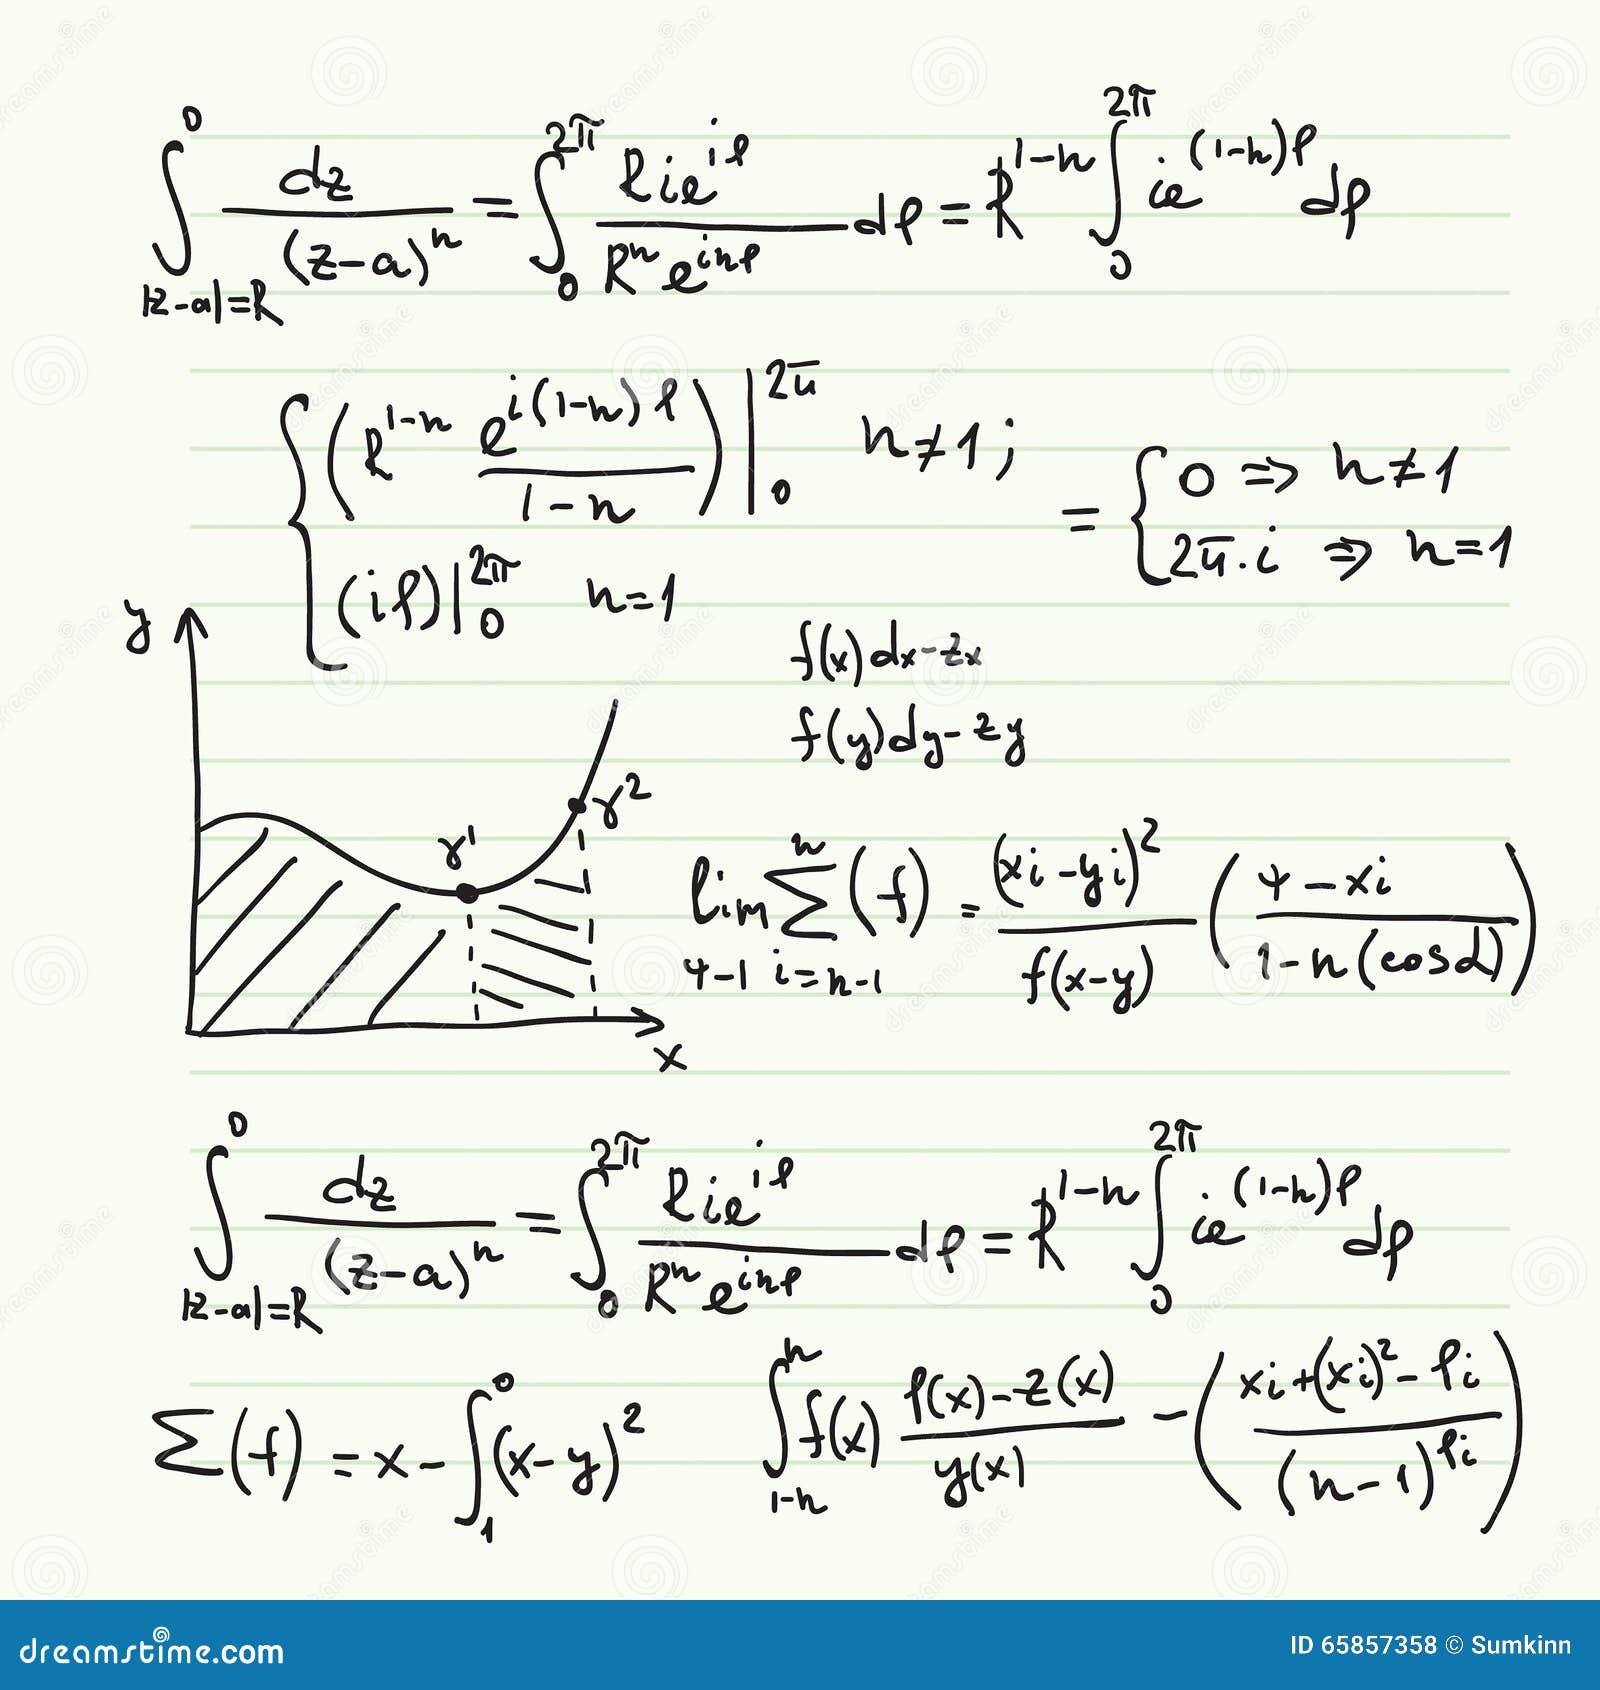 ∫_{|z-a|=R}^{0} dz/(z-a)^n = ∫_0^{2π} Rie^{iρ}/(R^n e^{inρ}) dρ = R^{1-n} ∫_0^{2π} ie^{(1-n)ρ} dρ
{ (R^{1-n} e^{i(1-n)ρ}/(1-n)) |_0^{2π} n≠1;
(iρ)|_0^{2π} n=1
= { 0 ⇒ n≠1
2π·i ⇒ n=1
y
f(x)dx-zx
f(y)dy-zy
γ¹
γ²
x
lim_{ψ-1} Σ_{i=n-1}^{n} (f) = (xi-yi)²/f(x-y) ((ψ-xi)/(1-n(cosα)))
∫_{|z-a|=R}^{0} dz/(z-a)^n = ∫_0^{2π} Rie^{iρ}/(R^n e^{inρ}) dρ = R^{1-n} ∫_0^{2π} ie^{(1-n)ρ} dρ
Σ(f) = x - ∫_1^0 (x-y)²
∫_{1-n}^{n} f(x) (ρ(x)-z(x))/y(x) - ((xi+(xi)²-ρi)/(n-1)^{ρi})
dreamstime.com
ID 65857358 © Sumkinn